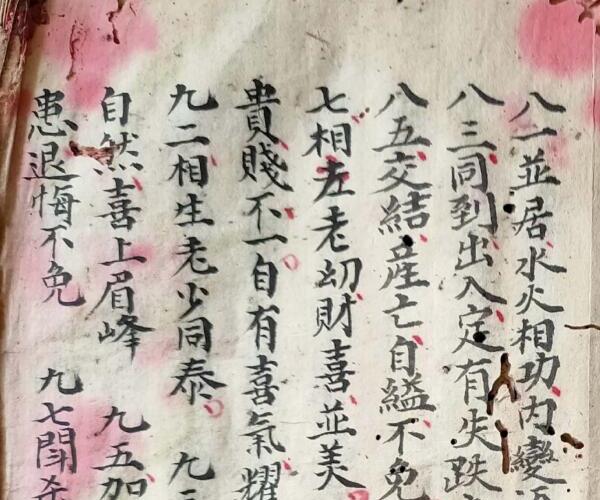 八一並居水火相功內變
八三同到出入定有失跌
八五交結產亡自縊不免
七相左老幼財喜並美
貴賤不一自有喜氣耀
九二相生老少同泰 九
自然喜上眉峰 九五加
患退悔不免 九七鬧